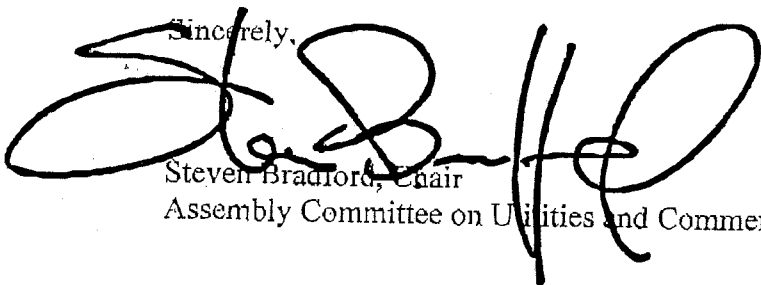 Sincerely,
Steven Bradford, Chair
Assembly Committee on Utilities and Commer